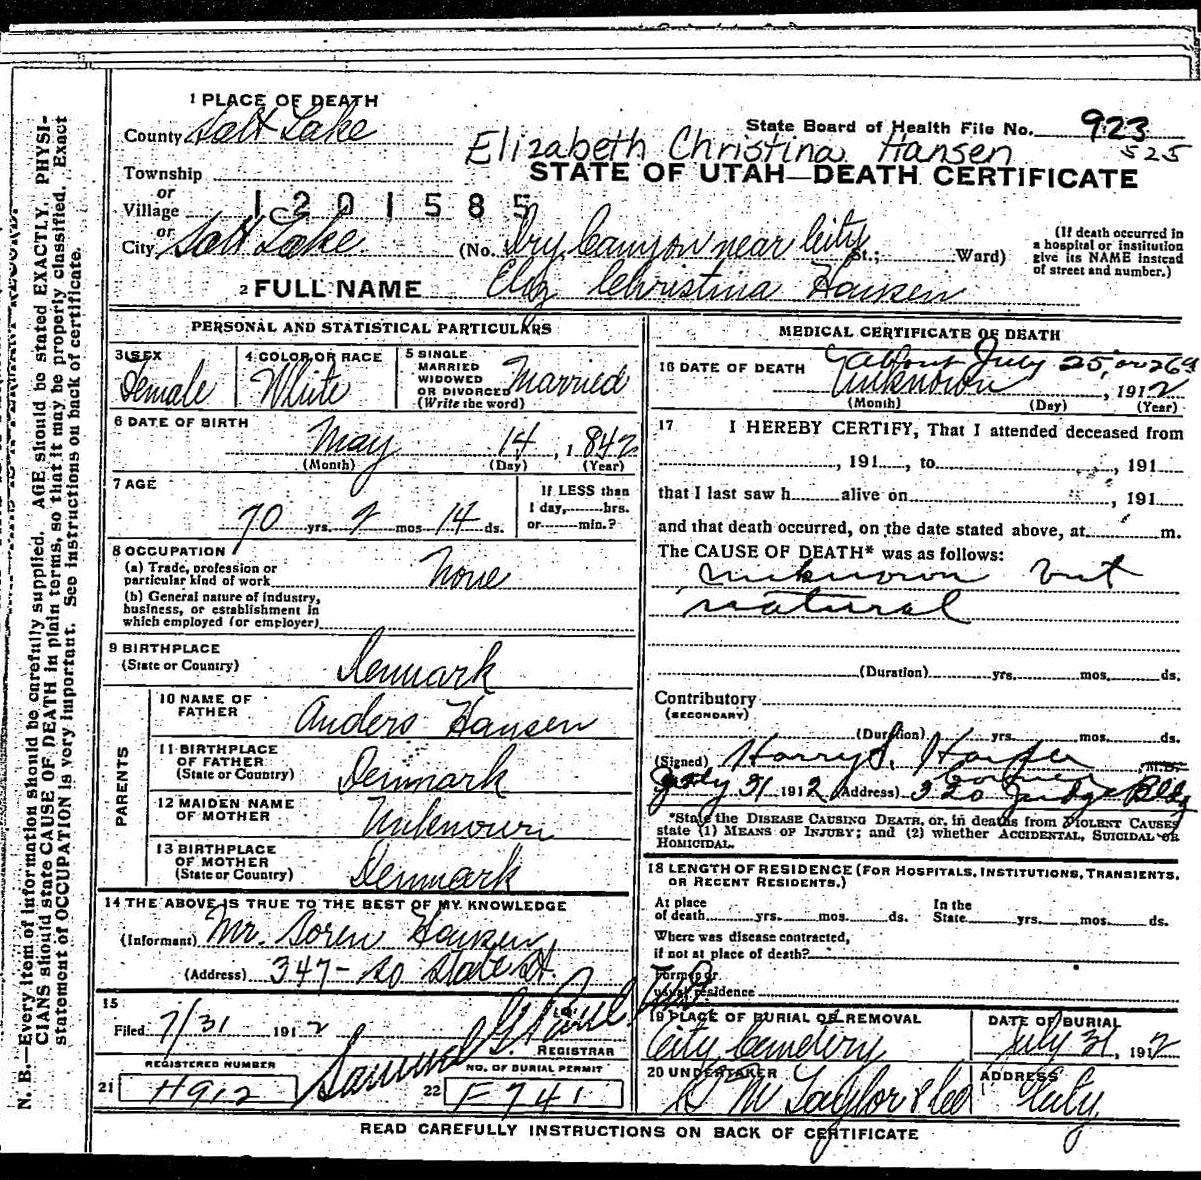 1 PLACE OF DEATH
County Salt Lake
State Board of Health File No. 923
525
Elizabeth Christina Hansen
Township
STATE OF UTAH—DEATH CERTIFICATE
or
Village
1201585
or
City Salt Lake (No. Dry Canyon near City St.; Ward)
(If death occurred in a hospital or institution give its NAME instead of street and number.)
2 FULL NAME Eliz Christina Hansen
PERSONAL AND STATISTICAL PARTICULARS
3 SEX Female
4 COLOR OR RACE White
5 SINGLE MARRIED WIDOWED OR DIVORCED (Write the word) Married
6 DATE OF BIRTH
May 14, 1842
(Month) (Day) (Year)
7 AGE
70 yrs. 2 mos. 14 ds.
If LESS than 1 day, hrs. or min.?
8 OCCUPATION
(a) Trade, profession or particular kind of work None
(b) General nature of industry, business, or establishment in which employed (or employer)
9 BIRTHPLACE
(State or Country) Denmark
PARENTS
10 NAME OF FATHER Anders Hansen
11 BIRTHPLACE OF FATHER (State or Country) Denmark
12 MAIDEN NAME OF MOTHER Unknown
13 BIRTHPLACE OF MOTHER (State or Country) Denmark
14 THE ABOVE IS TRUE TO THE BEST OF MY KNOWLEDGE
(Informant) Mr. Soren Hansen
(Address) 347- So State St.
15
Filed 7/31 1912
Samuel G.
REGISTRAR
REGISTERED NUMBER
21 H912
NO. OF BURIAL PERMIT
22 F741
MEDICAL CERTIFICATE OF DEATH
about July 25, or 26th
16 DATE OF DEATH Unknown, 1912
(Month) (Day) (Year)
17 I HEREBY CERTIFY, That I attended deceased from
, 191 , to , 191
that I last saw h alive on , 191
and that death occurred, on the date stated above, at m.
The CAUSE OF DEATH* was as follows:
unknown but
natural
(Duration) yrs. mos. ds.
Contributory
(SECONDARY)
(Duration) yrs. mos. ds.
(Signed) Harry S. Harper M.D.
Coroner
July 31 1912 (Address) 320 Judge Bldg
*State the DISEASE CAUSING DEATH, or, in deaths from VIOLENT CAUSES
state (1) MEANS OF INJURY; and (2) whether ACCIDENTAL, SUICIDAL OR
HOMICIDAL.
18 LENGTH OF RESIDENCE (FOR HOSPITALS, INSTITUTIONS, TRANSIENTS,
OR RECENT RESIDENTS.)
At place of death yrs. mos. ds. In the State yrs. mos. ds.
Where was disease contracted,
if not at place of death?
Former or
usual residence
19 PLACE OF BURIAL OR REMOVAL City Cemetery
DATE OF BURIAL July 31, 1912
20 UNDERTAKER S M Taylor & Co
ADDRESS City
READ CAREFULLY INSTRUCTIONS ON BACK OF CERTIFICATE
N. B.—Every item of information should be carefully supplied. AGE should be stated EXACTLY. PHYSI-
CIANS should state CAUSE OF DEATH in plain terms, so that it may be properly classified. Exact
statement of OCCUPATION is very important. See instructions on back of certificate.